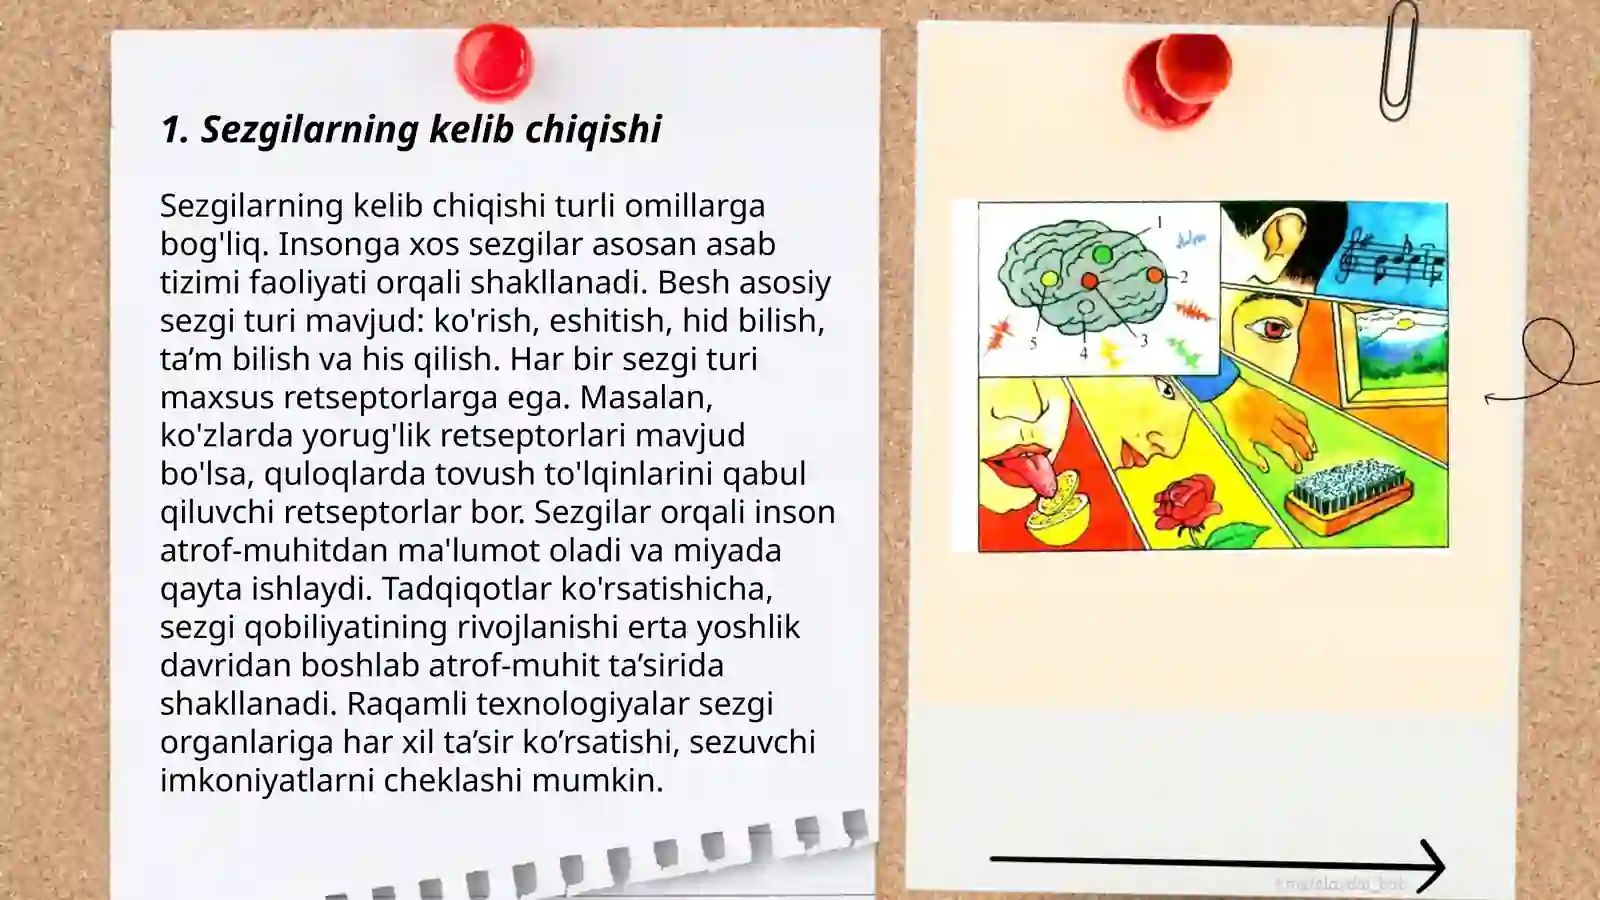 1. Sezgilarning kelib chiqishi
Sezgilarning kelib chiqishi turli omillarga
bog'liq. Insonga xos sezgilar asosan asab
tizimi faoliyati orqali shakllanadi. Besh asosiy
sezgi turi mavjud: ko'rish, eshitish, hid bilish,
ta’m bilish va his qilish. Har bir sezgi turi
maxsus retseptorlarga ega. Masalan,
ko'zlarda yorug'lik retseptorlari mavjud
bo'lsa, quloqlarda tovush to'lqinlarini qabul
qiluvchi retseptorlar bor. Sezgilar orqali inson
atrof-muhitdan ma'lumot oladi va miyada
qayta ishlaydi. Tadqiqotlar ko'rsatishicha,
sezgi qobiliyatining rivojlanishi erta yoshlik
davridan boshlab atrof-muhit ta’sirida
shakllanadi. Raqamli texnologiyalar sezgi
organlariga har xil ta’sir ko’rsatishi, sezuvchi
imkoniyatlarni cheklashi mumkin.
1
2
3
4
5